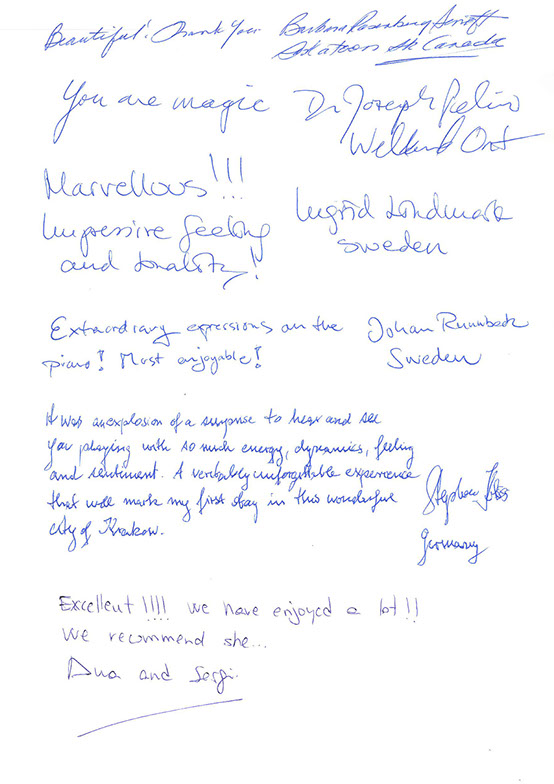 Beautiful! Thank You. Barbara Rosenberg
Saskatoon Sk Canada
You are magic Dr Joseph
Welland Ont
Marvellous!!!
Impressive feeling Ingrid Lindmark
and tonality! Sweden
Extraordinary expressions on the Johan Runnbeck
piano! Most enjoyable! Sweden
It was an explosion of a surprise to hear and see
you playing with so much energy, dynamics, feeling
and sentiment. A veritably unforgettable experience
that will mark my first stay in this wonderful Stephan
city of Krakow.
Germany
Excellent !!!! we have enjoyed a lot!!
We recommend she...
and Sergi.